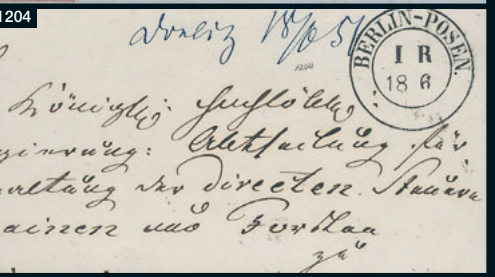 1204
Doelitz 18/6 51
BERLIN-POSEN.
I R
18 6
1204
Königl: Hochlöbl:
gierung: Abtheilung für
altung der directen Steuern
ainen und Forsten
zu